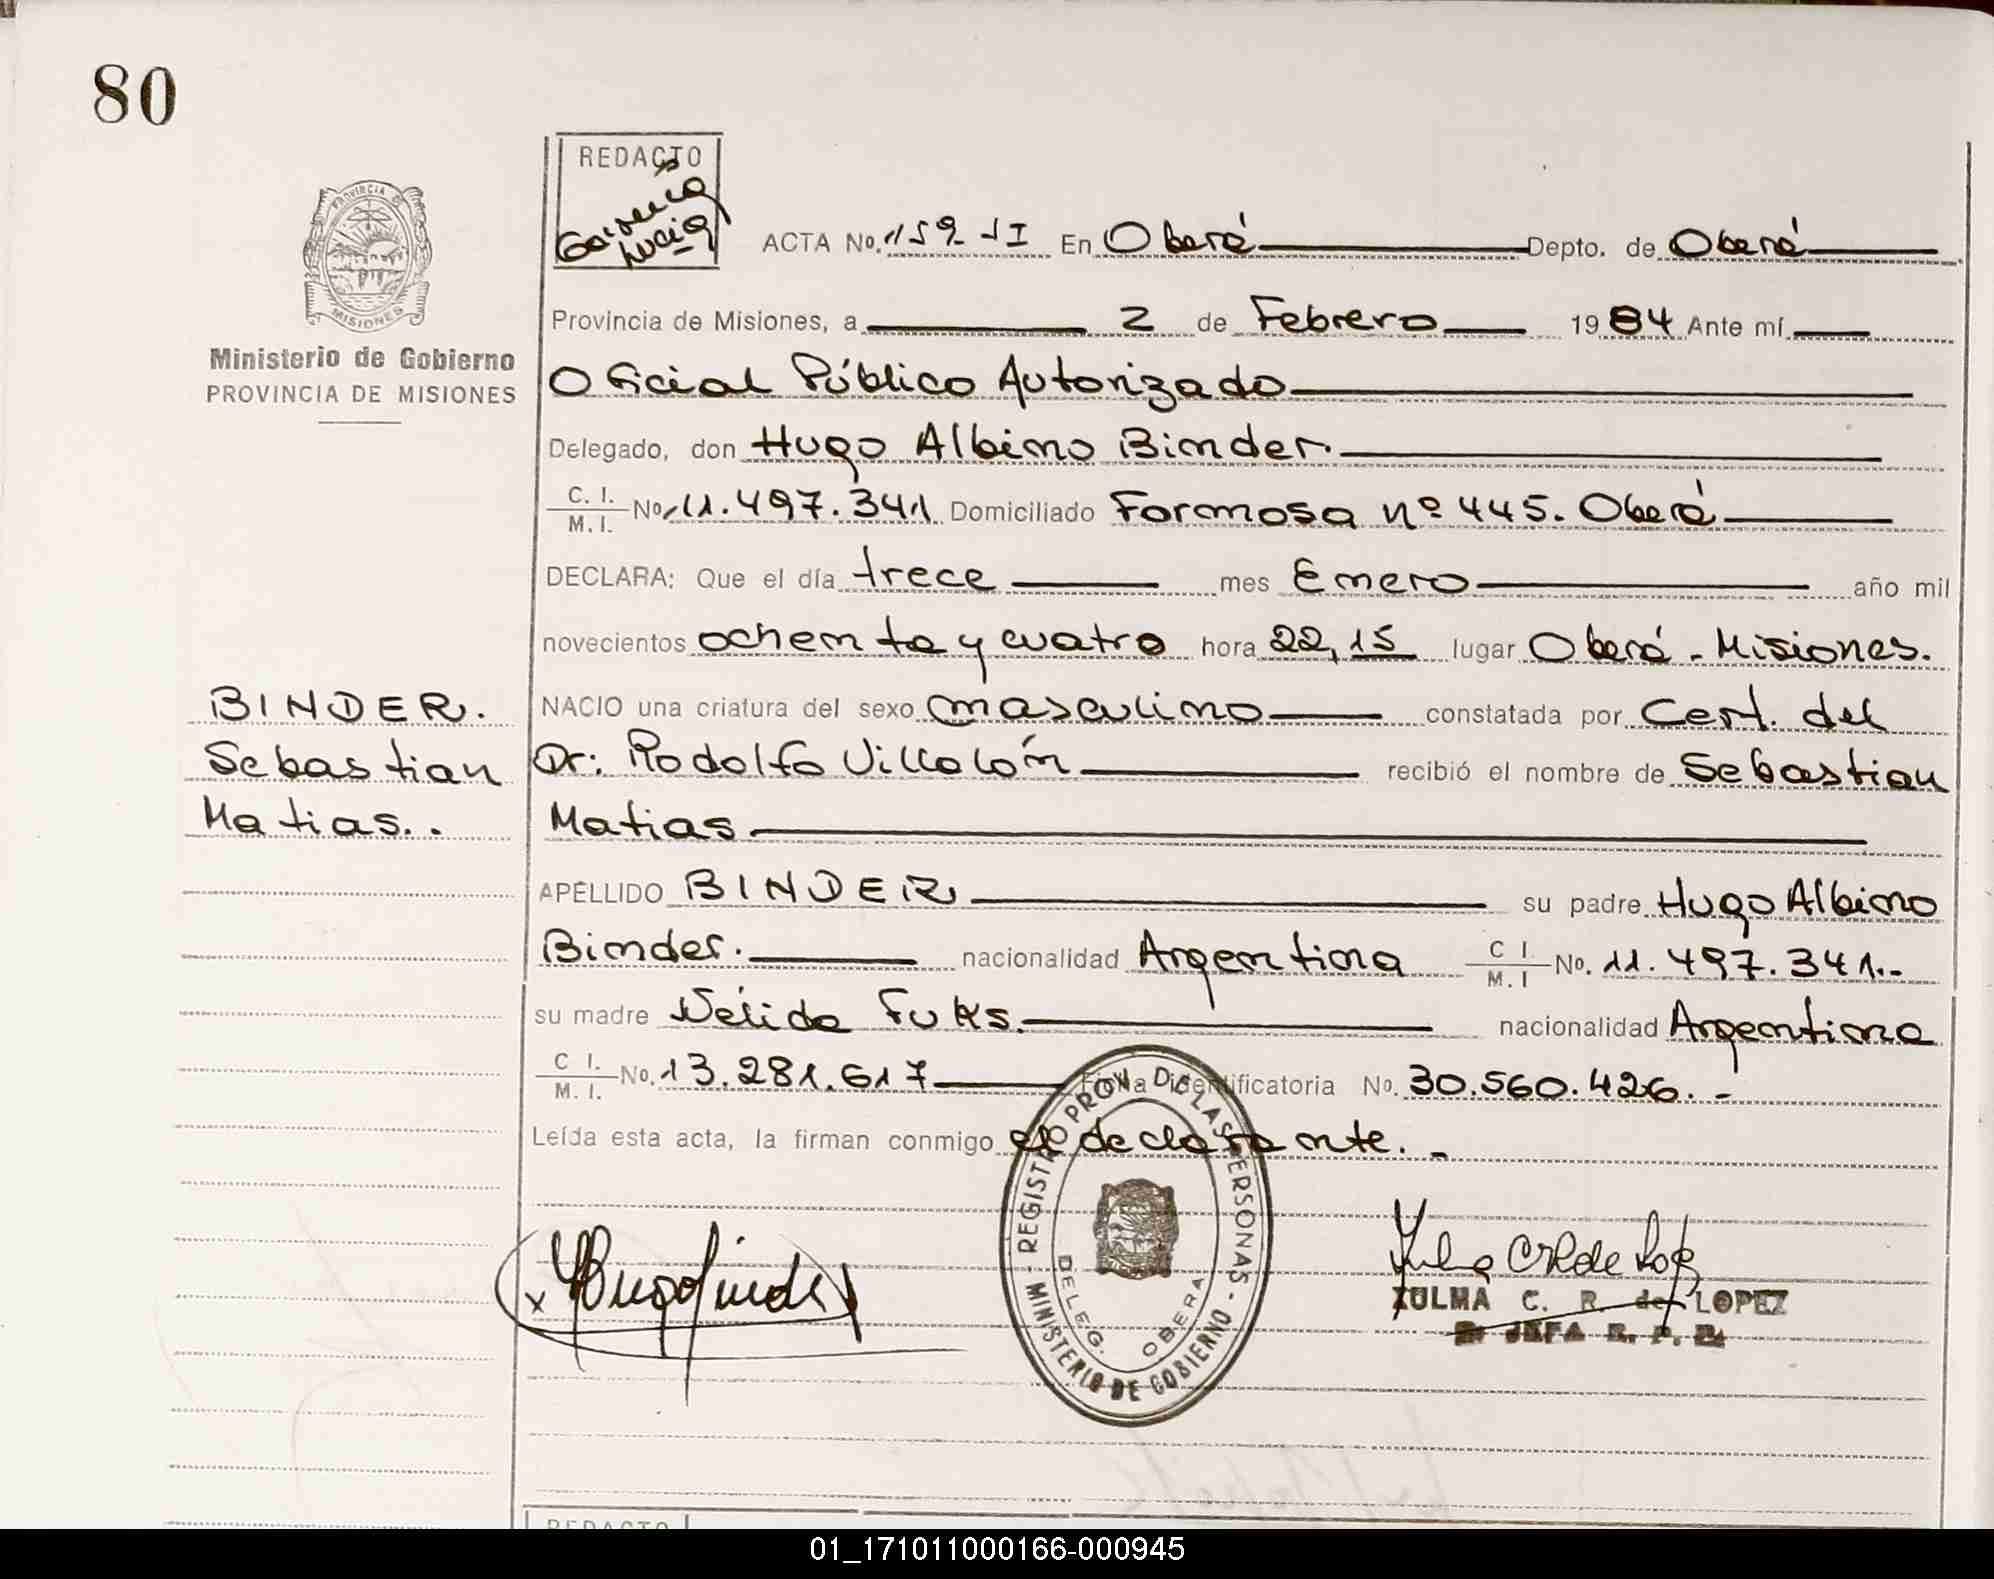 80
REDACTO
PROVINCIA DE
MISIONES
Ministerio de Gobierno
PROVINCIA DE MISIONES
ACTA No. 159-II En Oberá Depto. de Oberá
Provincia de Misiones, a 2 de Febrero 1984 Ante mí
Oficial Público Autorizado
Delegado, don Hugo Albino Binder.
C. I. / M. I. No. 11.497.341 Domiciliado Formosa nº 445. Oberá
DECLARA: Que el día trece mes Enero año mil
novecientos ochenta y cuatro hora 22,15 lugar Oberá - Misiones.
NACIO una criatura del sexo masculino constatada por Cert. del
Dr: Rodolfo Villalón recibió el nombre de Sebastian
Matias
BINDER.
Sebastian
Matias..
APELLIDO BINDER su padre Hugo Albino
Binder. nacionalidad Argentina C I. / M. I No. 11.497.341.-
su madre Nélida Fuks. nacionalidad Argentina
C I. / M. I. No. 13.281.617 Ficha identificatoria No. 30.560.426.-
Leída esta acta, la firman conmigo el declarante.-
REGISTRO PROV. DE LAS PERSONAS - MINISTERIO DE GOBIERNO -
DELEG. OBERA
ZULMA C. R. de LOPEZ
JEFA R. P. P.
REDACTO
01_171011000166-000945